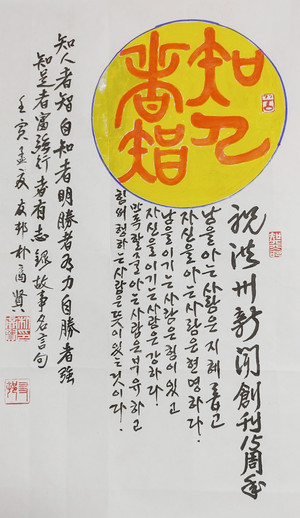 知人
者智
祝洪州新聞創刊15周年
남을 아는 사람은 지혜롭고
자신을 아는 사람은 현명하다.
남을 이기는 사람은 힘이 있고
자신을 이기는 사람은 강하다.
만족할 줄 아는 사람은 부유하고
힘써 행하는 사람은 뜻이 있는 것이다.
知人者智自知者明勝者有力自勝者強
知足者富強行者有志錄故事名言句
壬寅孟夏友邦朴商賢